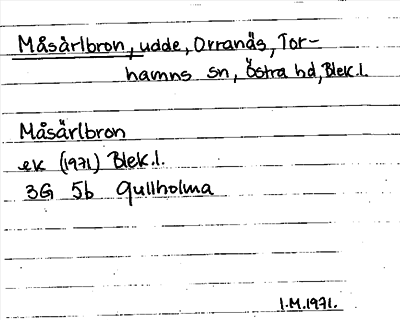 Måsårlbron, udde, Orranäs, Tor-
hamns sn, Östra hd, Blek.l.
Måsärlbron
ek (1971) Blek.l.
3G 5b Gullholma
I.M.1971.